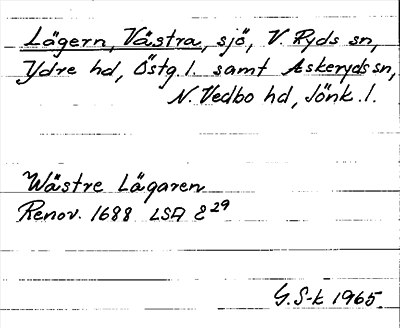 Lägern, Västra, sjö, V. Ryds sn,
Ydre hd, Östg. l. samt Askeryds sn,
N. Vedbo hd, Jönk. l.
Wästre Lägaren
Renov. 1688 LSA E29
G. S-k 1965.